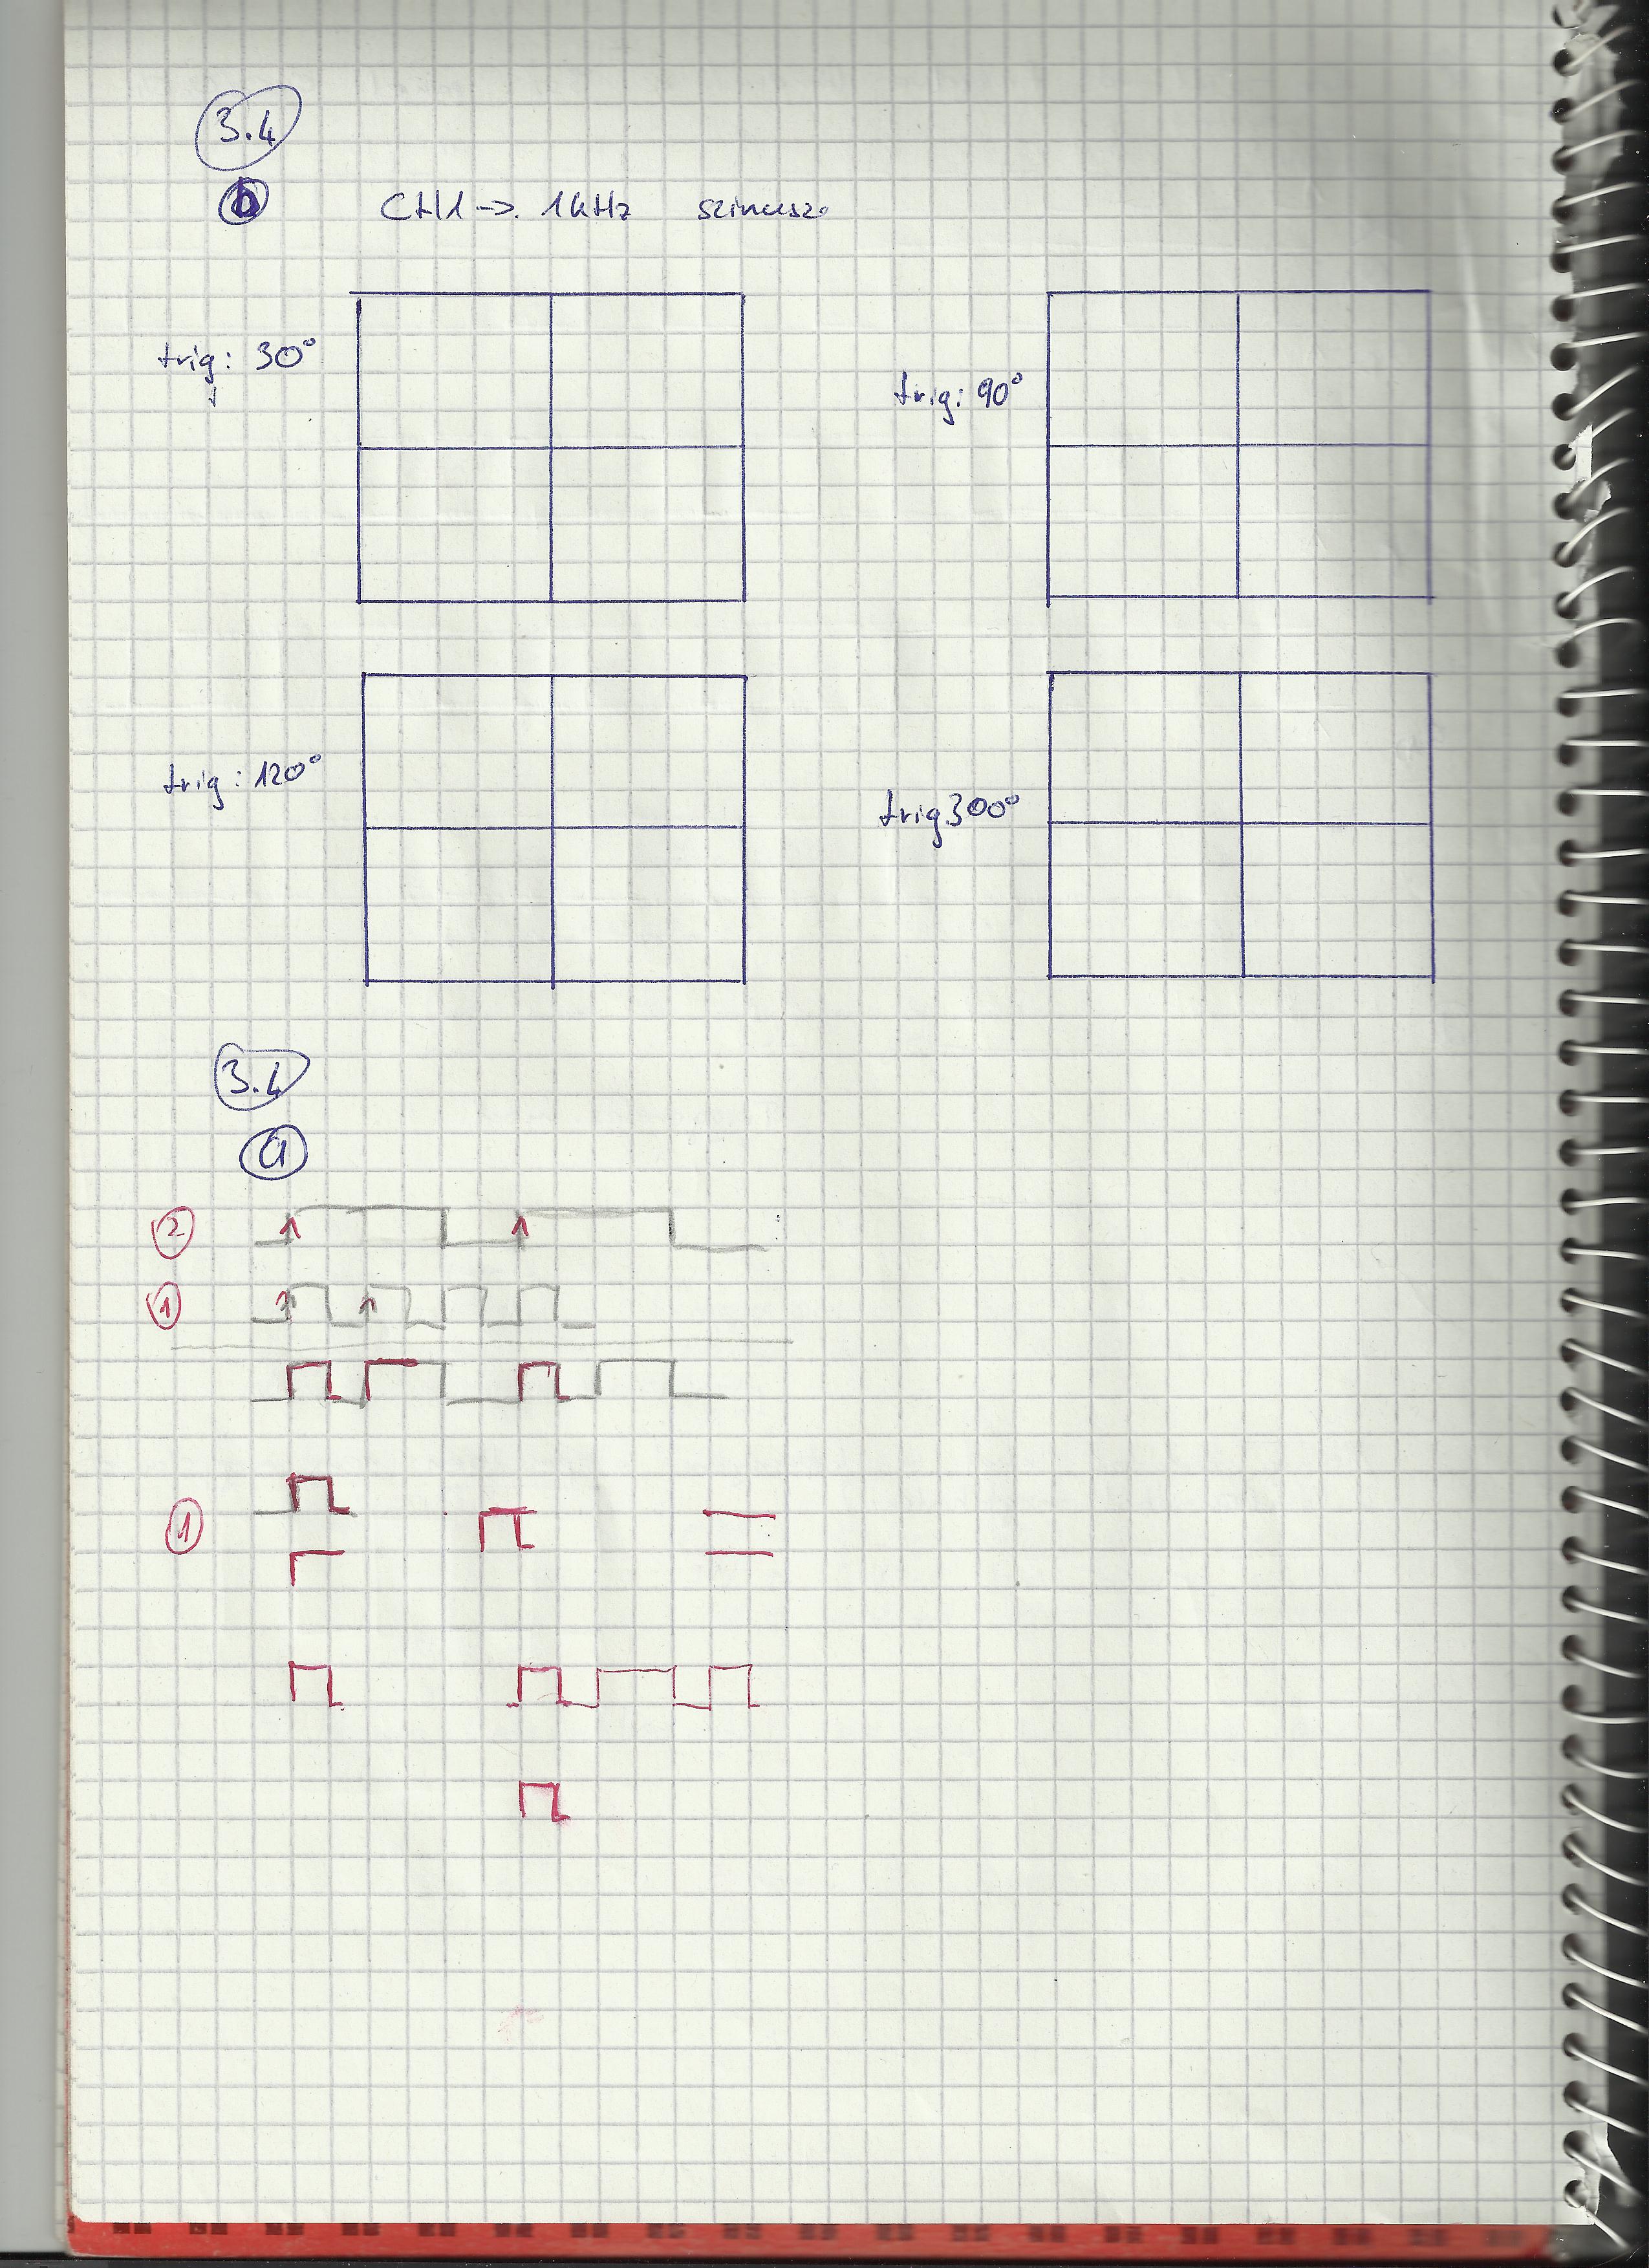 3.4
b CH1 → 1kHz szinusz
trig: 30°
trig: 90°
trig: 120°
trig 300°
3.4
a
2
1
1